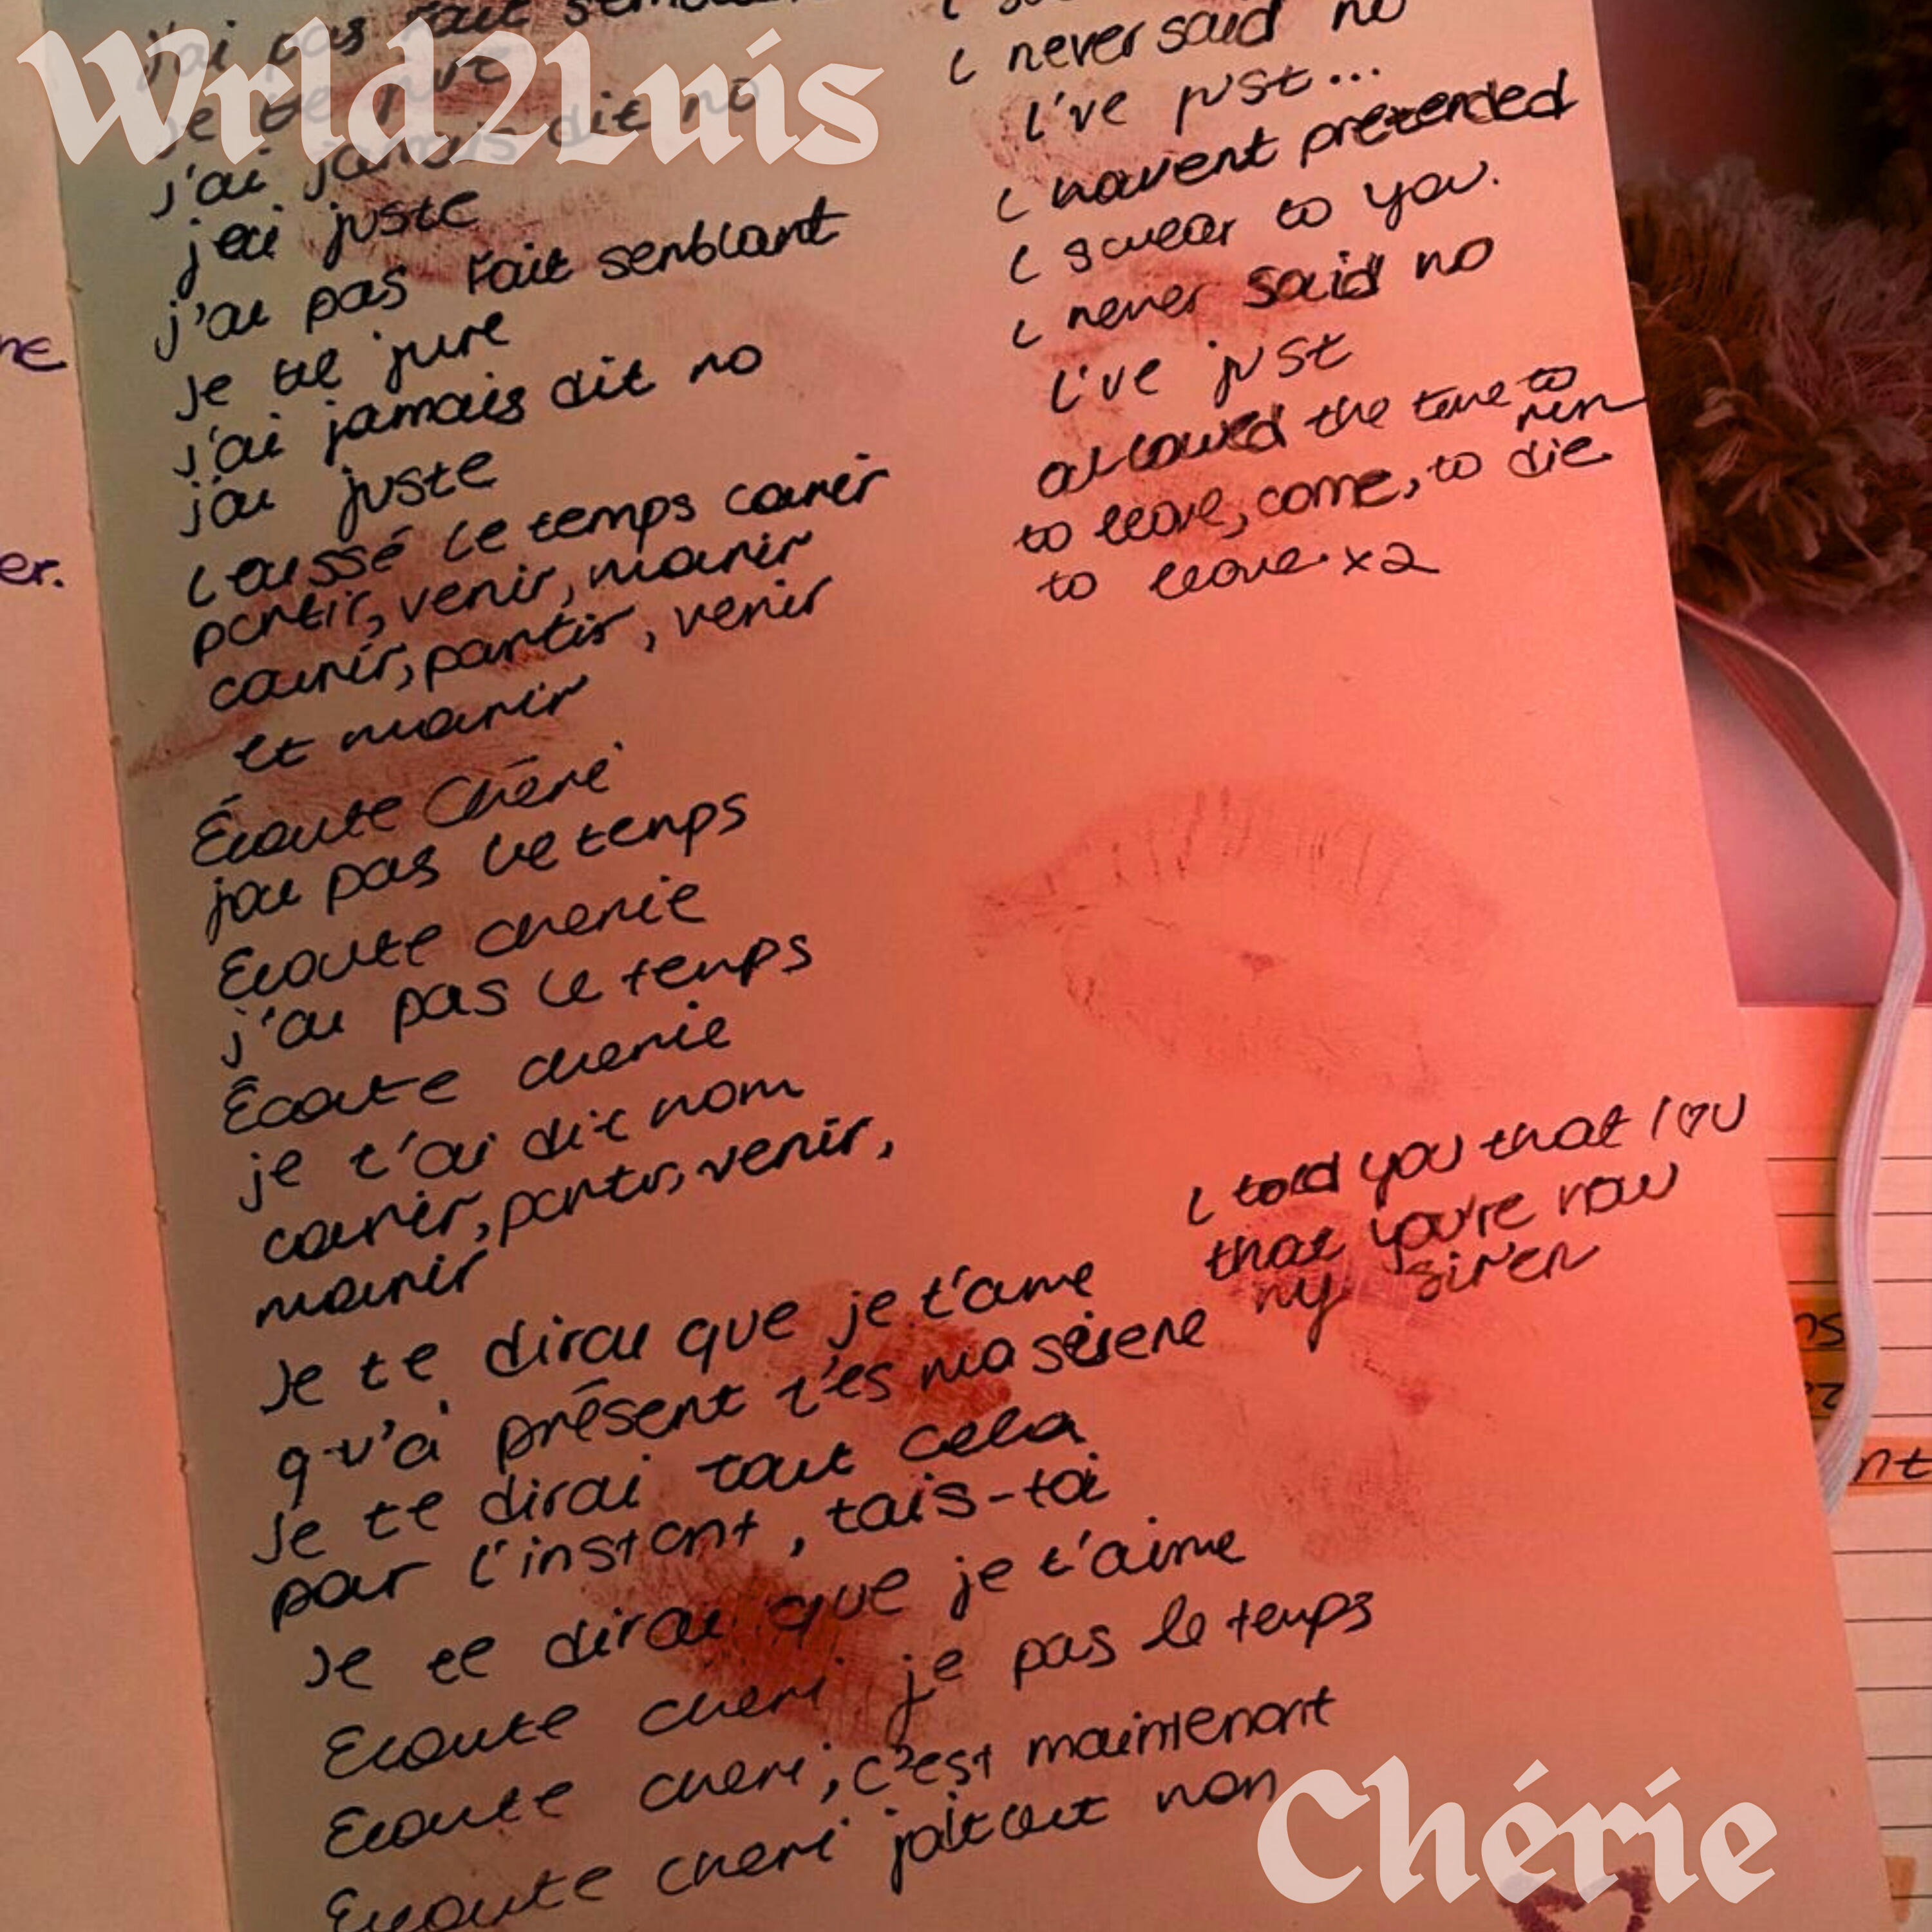 Wrld2Luis
j'ai pas fait
je te jure
j'ai jamais dit no
j'ai juste
j'ai pas fait semblant
je te jure
j'ai jamais dit no
j'ai juste
laissé le temps courir
partir, venir, mourir
courir, partir, venir
et mourir
Écoute Chéri
j'ai pas le temps
Écoute cherie
j'ai pas le temps
Écoute cherie
je t'ai dit nom
courir, partir, venir,
mourir
Je te dirai que je t'aime
qu'à présent t'es ma sirene
Je te dirai tout cela
pour l'instant, tais-toi
Je te dirai que je t'aime
Ecoute cheri je pas le temps
Ecoute cheri, c'est maintenant
Ecoute cheri non
i never said no
i've just...
i havent pretended
i swear to you.
i never said no
i've just
allowed the time to
run
to leave, come, to die
to leave. x2
i told you that I ♡ U
that you're now
my siren
ne
er.
nt
Chérie